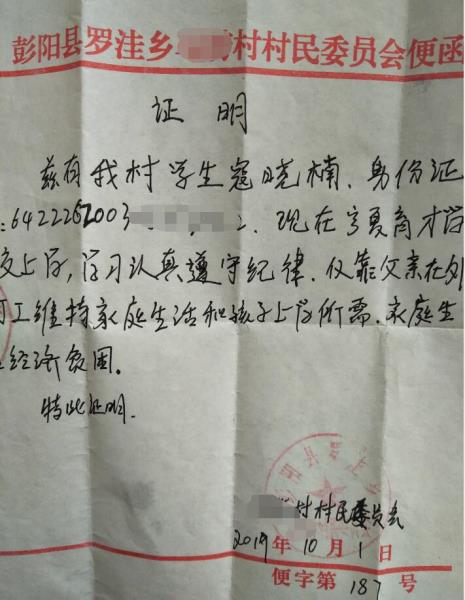 彭阳县罗洼乡 村村民委员会便函
证 明
兹有我村学生寇晓楠、身份证
:6422262003 2. 现在宁夏育才学
校上学,学习认真遵守纪律.仅靠父亲在外
打工维持家庭生活和孩子上学所需.家庭生
经济贫困。
特此证明.
彭阳县罗洼乡
村村民委员会
2019年10月1日
便字第187号